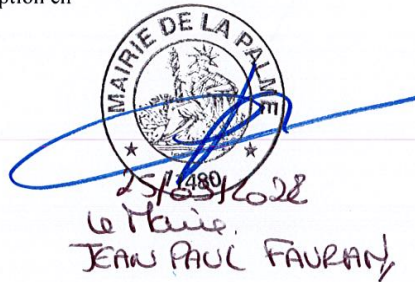 ption en
MAIRIE DE LA PALME
11480
Le Maire.
JEAN PAUL FAURAN